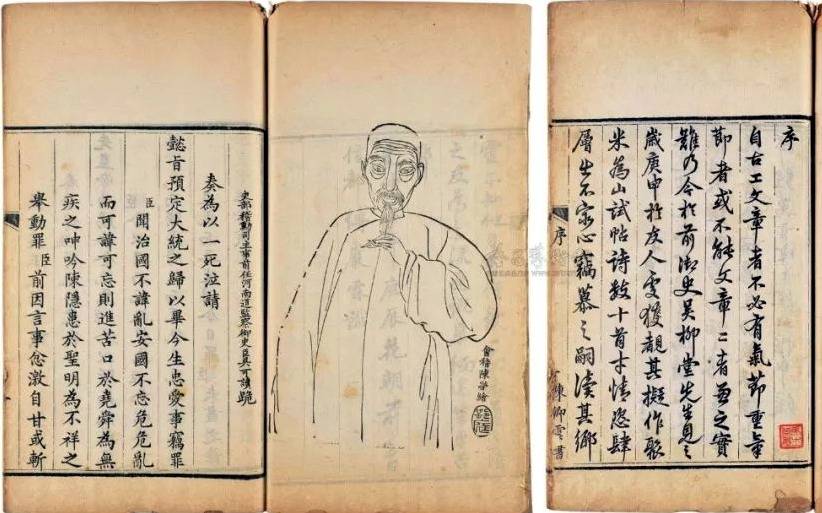 序
自古工文章者不必有氣節重氣
節者或不能文章二者兼之實
難乃今於前御史吳柳堂先生見之
歲庚申於友人處獲覩其擬作聚
米為山試帖詩數十首才情恣肆
層出不窮心竊慕之嗣讀其鄉
序
陳卿雲書
會稽陳繪
吏部稽勳司主事前任河南道監察御史臣吳可讀跪
奏為以一死泣請
懿旨預定大統之歸以畢今生忠愛事竊罪
臣聞治國不諱亂安國不忘危危亂
而可諱可忘則進苦口於堯舜為無
疾之呻吟陳隱患於聖明為不祥之
舉動罪臣前因言事忿激自甘或斬